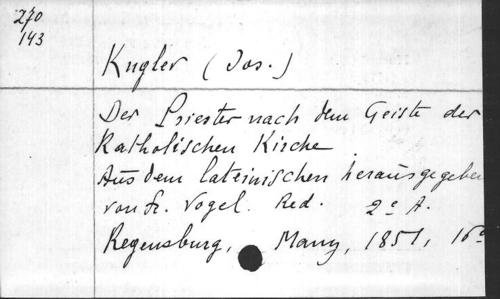 270
143
Kugler (Jos.)
Der Priester nach dem Geiste der
Katholischen Kirche
Aus dem lateinischen herausgegeben
von Fr. Vogel. Red. 2e A.
Regensburg, Manz, 1851, 16°